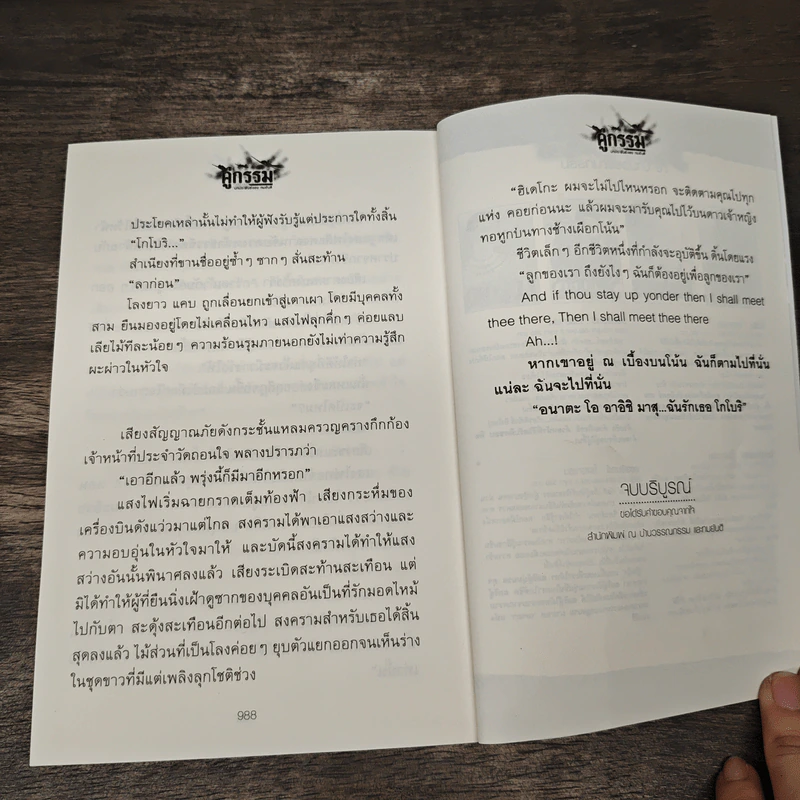 คู่กรรม
ประโยคเหล่านั้นไม่ทำให้ผู้ฟังรับรู้แต่ประการใดทั้งสิ้น
“โกโบริ...”
สำเนียงที่ขานชื่ออยู่ซ้ำๆ ซากๆ สั่นสะท้าน
“ลาก่อน”
โลงยาว แคบ ถูกเลื่อนยกเข้าสู่เตาเผา โดยมีบุคคลทั้ง
สาม ยืนมองอยู่โดยไม่เคลื่อนไหว แสงไฟลุกคึ่กๆ ค่อยแลบ
เลียไม้ทีละน้อยๆ ความร้อนรุมภายนอกยังไม่เท่าความรู้สึก
ผะผ่าวในหัวใจ
เสียงสัญญาณภัยดังกระชั้นแหลมครวญครางกึกก้อง
เจ้าหน้าที่ประจำวัดถอนใจ พลางปรารภว่า
“เอาอีกแล้ว พรุ่งนี้ก็มีมาอีกหรอก”
แสงไฟเริ่มฉายกราดเต็มท้องฟ้า เสียงกระหึ่มของ
เครื่องบินดังแว่วมาแต่ไกล สงครามได้พาเอาแสงสว่างและ
ความอบอุ่นในหัวใจมาให้ และบัดนี้สงครามได้ทำให้แสง
สว่างอันนั้นพินาศลงแล้ว เสียงระเบิดสะท้านสะเทือน แต่
มิได้ทำให้ผู้ที่ยืนนิ่งเฝ้าดูซากของบุคคลอันเป็นที่รักมอดไหม้
ไปกับตา สะดุ้งสะเทือนอีกต่อไป สงครามสำหรับเธอได้สิ้น
สุดลงแล้ว ไม้ส่วนที่เป็นโลงค่อยๆ ยุบตัวแยกออกจนเห็นร่าง
ในชุดขาวที่มีแต่เพลิงลุกโชติช่วง
988
คู่กรรม
“ฮิเดโกะ ผมจะไม่ไปไหนหรอก จะติดตามคุณไปทุก
แห่ง คอยก่อนนะ แล้วผมจะมารับคุณไปไว้บนดาวเจ้าหญิง
ทอหูกบนทางช้างเผือกโน้น”
ชีวิตเล็กๆ อีกชีวิตหนึ่งที่กำลังจะอุบัติขึ้น ดิ้นโดยแรง
“ลูกของเรา ถึงยังไงๆ ฉันก็ต้องอยู่เพื่อลูกของเรา”
And if thou stay up yonder then I shall meet
thee there, Then I shall meet thee there
Ah...!
หากเขาอยู่ ณ เบื้องบนโน้น ฉันก็ตามไปที่นั่น
แน่ละ ฉันจะไปที่นั่น
“อนาตะ โอ อาอิชิ มาสุ...ฉันรักเธอ โกโบริ”
จบบริบูรณ์
ขอได้รับคำขอบคุณจากใจ
สำนักพิมพ์ ณ บ้านวรรณกรรม และทมยันตี